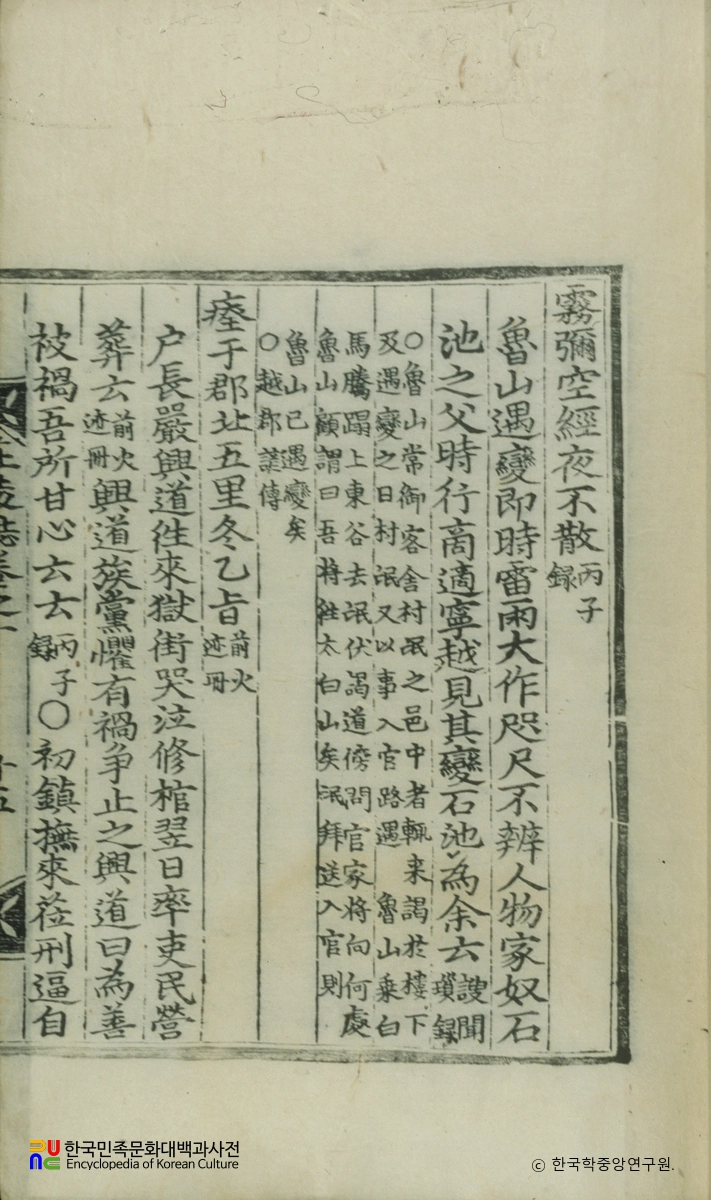 霧彌空經夜不散丙子錄
魯山遇變即時雷雨大作咫尺不辨人物家奴石
池之父時行商適寧越見其變石池為余云謏聞瑣錄
〇魯山常御客舍村氓之邑中者輒来謁於樓下
及遇變之日村氓又以事入官路遇 魯山乗白
馬騰蹋上東谷去氓伏謁道傍問官家将向何處
魯山顧謂曰吾将徃太白山矣氓拜送入官則
魯山已遇變矣
〇越郡諺傳
瘞于郡北五里冬乙旨前火迹冊
户長嚴興道徃來獄街哭泣修棺翌日率吏民營
葬云前火迹冊興道族黨懼有禍争止之興道曰為善
被禍吾所甘心云云丙子錄〇初鎮撫來莅刑逼自
陵誌卷之一
十五
한국민족문화대백과사전
Encyclopedia of Korean Culture
ⓒ 한국학중앙연구원.